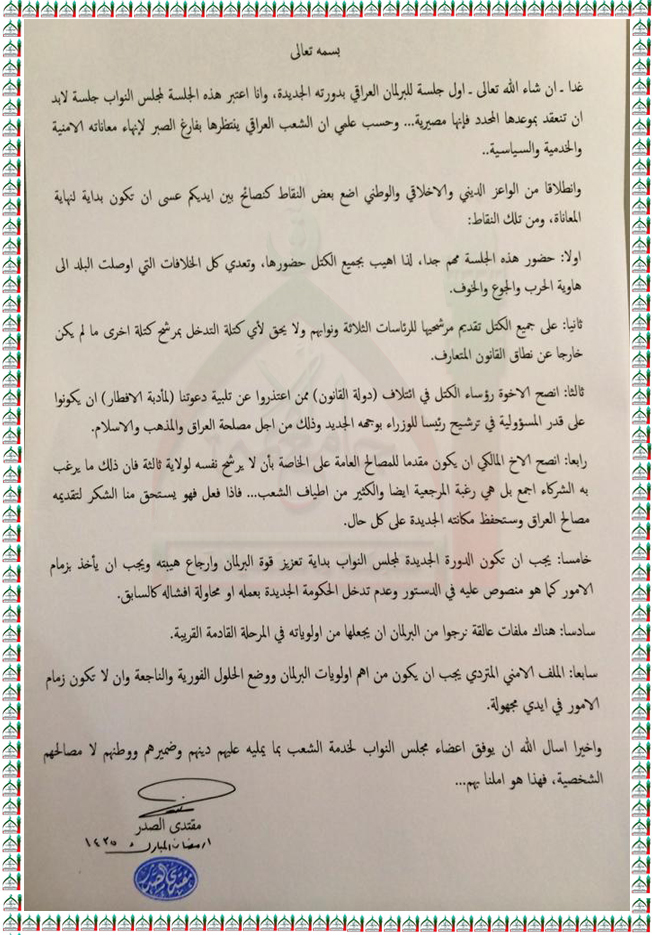 بسمه تعالى
غدا ـ ان شاء الله تعالى ـ اول جلسة للبرلمان العراقي بدورته الجديدة، وانا اعتبر هذه الجلسة لمجلس النواب جلسة لابد
ان تنعقد بموعدها المحدد فإنها مصيرية... وحسب علمي ان الشعب العراقي ينتظرها بفارغ الصبر لإنهاء معاناته الامنية
والخدمية والسياسية..
وانطلاقا من الواعز الديني والاخلاقي والوطني اضع بعض النقاط كنصائح بين ايديكم عسى ان تكون بداية لنهاية
المعاناة، ومن تلك النقاط:
اولا: حضور هذه الجلسة مهم جدا، لذا اهيب بجميع الكتل حضورها، وتعدي كل الخلافات التي اوصلت البلد الى
هاوية الحرب والجوع والخوف.
ثانيا: على جميع الكتل تقديم مرشحيها للرئاسات الثلاثة ونوابهم ولا يحق لأي كتلة التدخل بمرشح كتلة اخرى ما لم يكن
خارجا عن نطاق القانون المتعارف.
ثالثا: انصح الاخوة رؤساء الكتل في ائتلاف (دولة القانون) ممن اعتذروا عن تلبية دعوتنا (لمأدبة الافطار) ان يكونوا
على قدر المسؤولية في ترشيح رئيسا للوزراء بوجهه الجديد وذلك من اجل مصلحة العراق والمذهب والاسلام.
رابعا: انصح الاخ المالكي ان يكون مقدما للمصالح العامة على الخاصة بأن لا يرشح نفسه لولاية ثالثة فان ذلك ما يرغب
به الشركاء اجمع بل هي رغبة المرجعية ايضا والكثير من اطياف الشعب... فاذا فعل فهو يستحق منا الشكر لتقديمه
مصالح العراق وستحفظ مكانته الجديدة على كل حال.
خامسا: يجب ان تكون الدورة الجديدة لمجلس النواب بداية تعزيز قوة البرلمان وارجاع هيبته ويجب ان يأخذ بزمام
الامور كما هو منصوص عليه في الدستور وعدم تدخل الحكومة الجديدة بعمله او محاولة افشاله كالسابق.
سادسا: هناك ملفات عالقة نرجوا من البرلمان ان يجعلها من اولوياته في المرحلة القادمة القريبة.
سابعا: الملف الامني المتردي يجب ان يكون من اهم اولويات البرلمان ووضع الحلول الفورية والناجعة وان لا تكون زمام
الامور في ايدي مجهولة.
واخيرا اسال الله ان يوفق اعضاء مجلس النواب لخدمة الشعب بما يمليه عليهم دينهم وضميرهم ووطنهم لا مصالحهم
الشخصية، فهذا هو املنا بهم...
مقتدى الصدر
١ رمضان المبارك ١٤٣٥